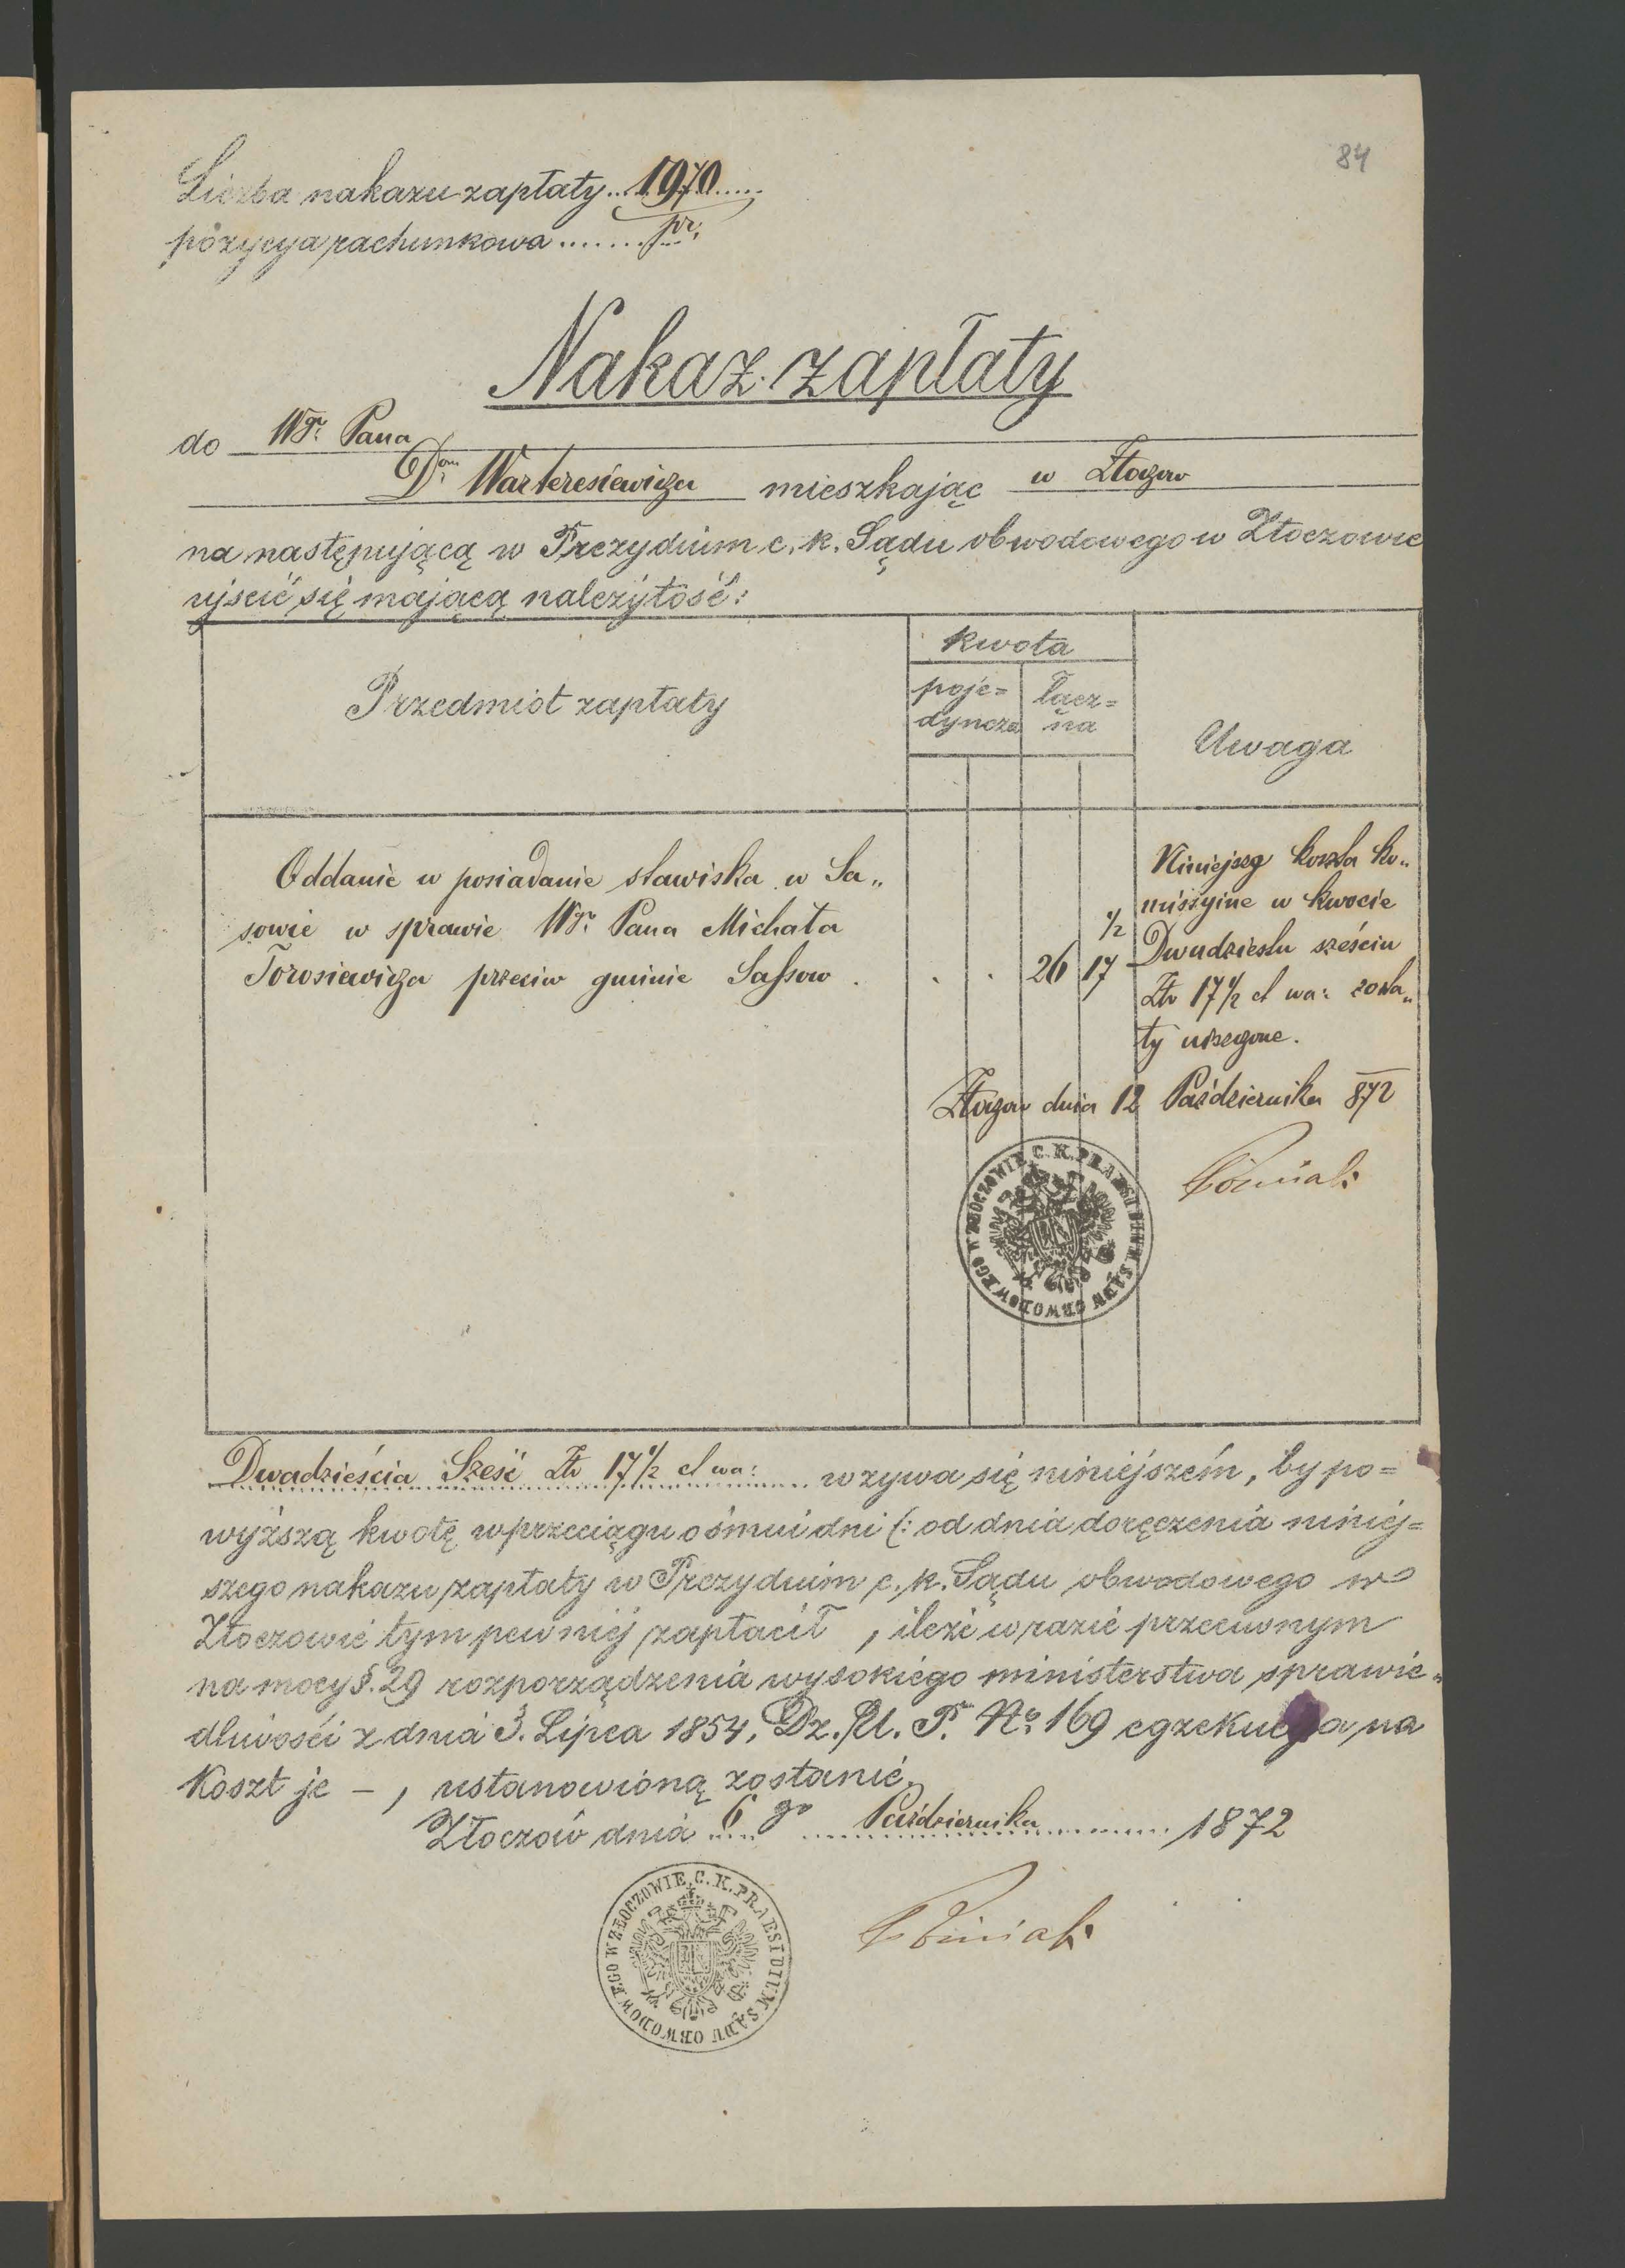 84
Liczba nakazu zapłaty .. 1970 ......
pozycya rachunkowa ....... pr.
Nakaz zapłaty
do Wgo Pana
Dra Warteresiewicza mieszkając w Złoczow
na następującą w Prezydium c. k. Sądu obwodowego w Złoczowie
ujscić się mającą należytość:
Przedmiot zapłaty
kwota
poje=
dyncza
łącz=
na
Uwaga
Oddanie w posiadanie stawiska w Sa„
sowie w sprawie Wgo Pana Michała
Torosiewicza przeciw gminie Sassow . . . 26 17 1/2
Niniejszy koszta ko„
missyine w kwocie
Dwudziestu sześciu
Złr 17 1/2 ct wa: zosta„
ły uiszczone.
Złoczow dnia 12 Października 872
C. K. PRAESIDIUM SĄDU OBWODOWEGO W ZŁOCZOWIE
Dwadzieścia Sześć Złr 17 1/2 ct wa: wzywa się niniejszém, by po=
wyższą kwotę w przeciągu ośmiu dni (: od dnia doręczenia niniej=
szego nakazu zapłaty w Prezydium c. k. Sądu obwodowego w
Złoczowie tym pewniej zapłacił , ileże w razie przeciwnym
na mocy §. 29 rozporządzenia wysokiego ministerstwa sprawie„
dliwości z dnia 3. Lipca 1854, Dz. U. P. No. 169 egzekucya na
koszt je – , ustanowioną zostanie.
Złoczów dnia 6 go Października 1872
C. K. PRAESIDIUM SĄDU OBWODOWEGO W ZŁOCZOWIE